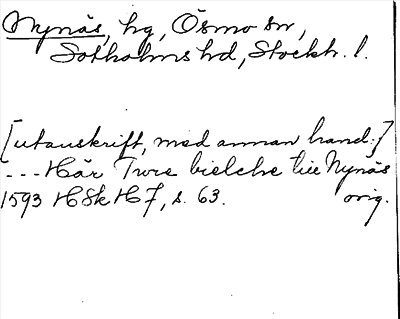 Nynäs, hg, Ösmo sn,
Sotholms hd, Stockh. l.
[utanskrift, med annan hand:]
--- Här Twre bielche till Nynäs
1593 HSk H 7, s. 63. orig.